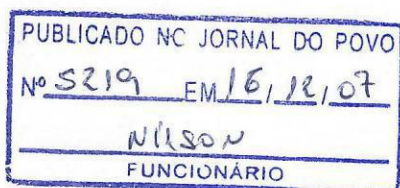 PUBLICADO NO JORNAL DO POVO
Nº 5219 EM 16, 12, 07
NILSON
FUNCIONÁRIO